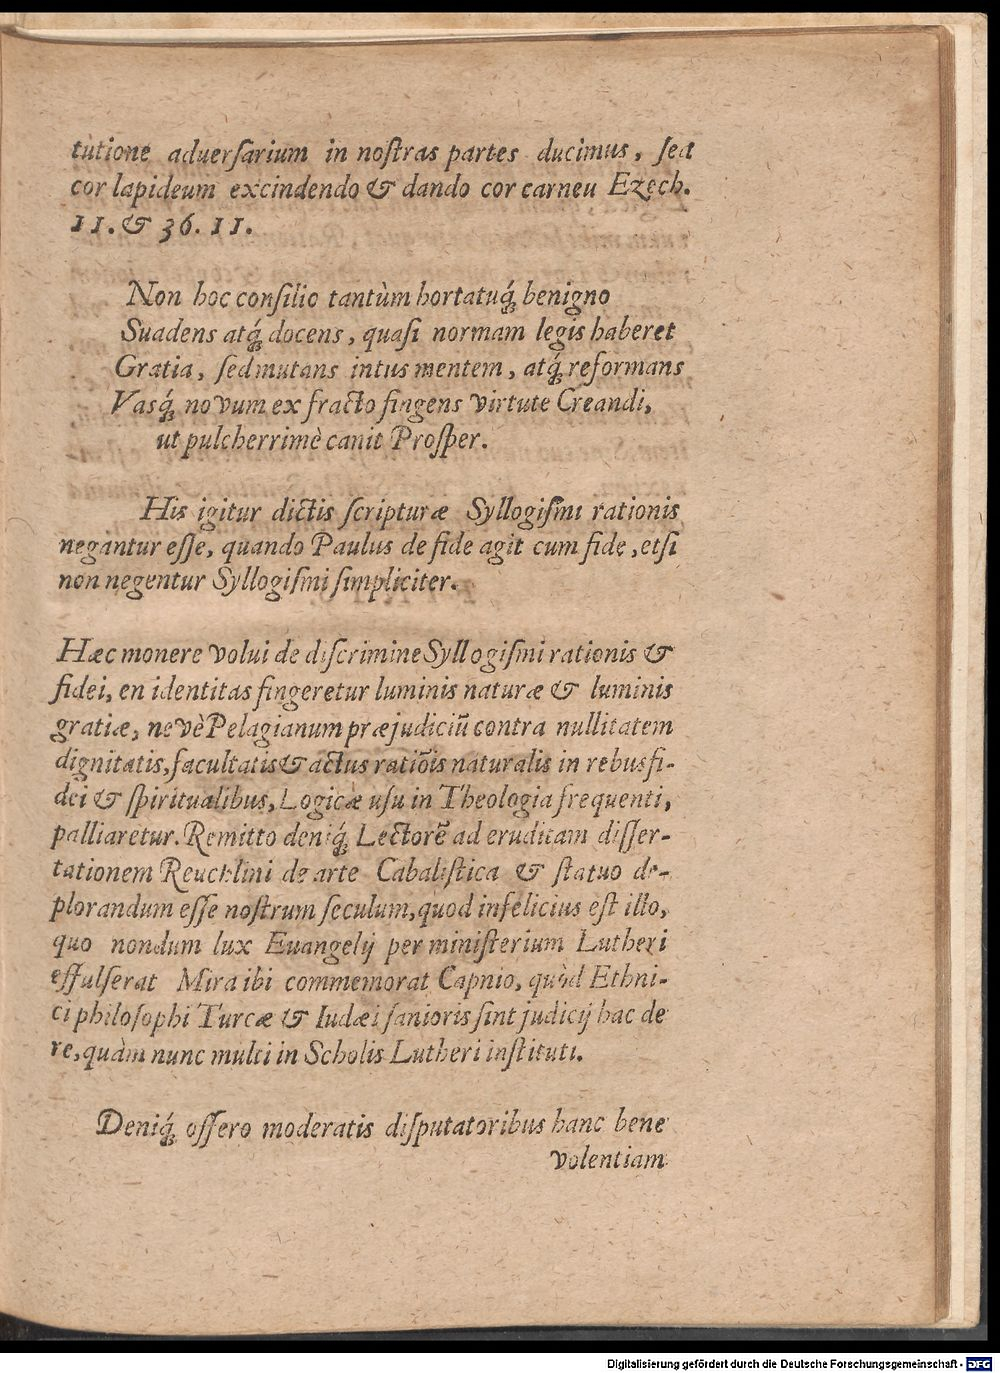 tutione aduerſarium in noſtras partes ducimus, ſed
cor lapideum excindendo & dando cor carneū Ezech.
11. & 36. 11.
Non hoc conſilio tantùm hortatuq́; benigno
Suadens atq́; docens, quaſi normam legis haberet
Gratia, ſed mutans intus mentem, atq́; reformans
Vasq́; novum ex fracto fingens virtute Creandi,
ut pulcherrimè canit Proſper.
His igitur dictis ſcripturæ Syllogiſmi rationis
negantur eſſe, quando Paulus de fide agit cum fide, etſi
non negentur Syllogiſmi ſimpliciter.
Hæc monere volui de diſcrimine Syllogiſmi rationis &
fidei, en identitas fingeretur luminis naturæ & luminis
gratiæ, ne vè Pelagianum præjudiciū contra nullitatem
dignitatis, facultatis & actus ratiōis naturalis in rebus fi-
dei & ſpiritualibus, Logicæ uſu in Theologia frequenti,
palliaretur. Remitto deniq́; Lectorē ad eruditam diſſer-
tationem Reuchlini de arte Cabaliſtica & ſtatuo de-
plorandum eſſe noſtrum ſeculum, quod infelicius eſt illo,
quo nondum lux Euangelij per miniſterium Lutheri
effulſerat Mira ibi commemorat Capnio, quòd Ethni-
ci philoſophi Turcæ & Iudæi ſanioris ſint judicij hac de
re, quàm nunc multi in Scholis Lutheri inſtituti.
Deniq́; offero moderatis diſputatoribus hanc bene
volentiam
Digitalisierung gefördert durch die Deutsche Forschungsgemeinschaft - DFG